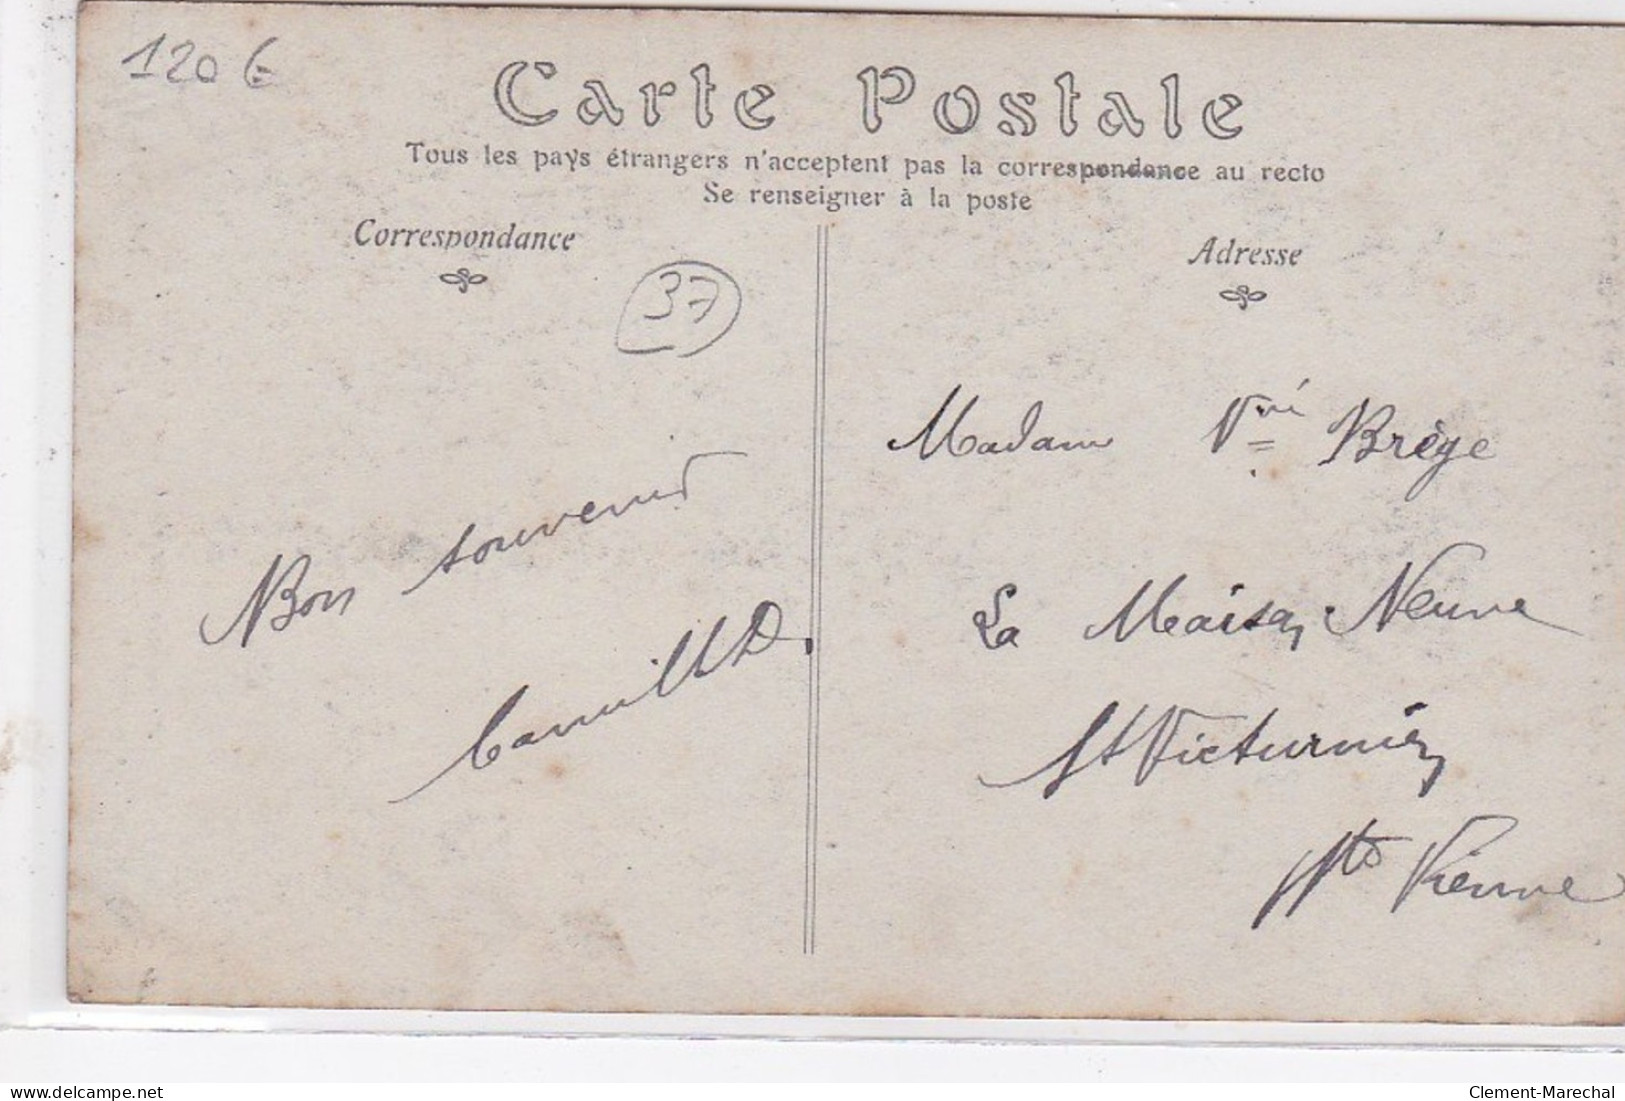 120 €
Carte Postale
Tous les pays étrangers n'acceptent pas la correspondance au recto
Se renseigner à la poste
Correspondance
Adresse
37
Madame Vve Brège
Bon souvenir
La Maison Neuve
Camille D.
St Victurnien
Hte Vienne
delcampe.net
Clement-Marechal